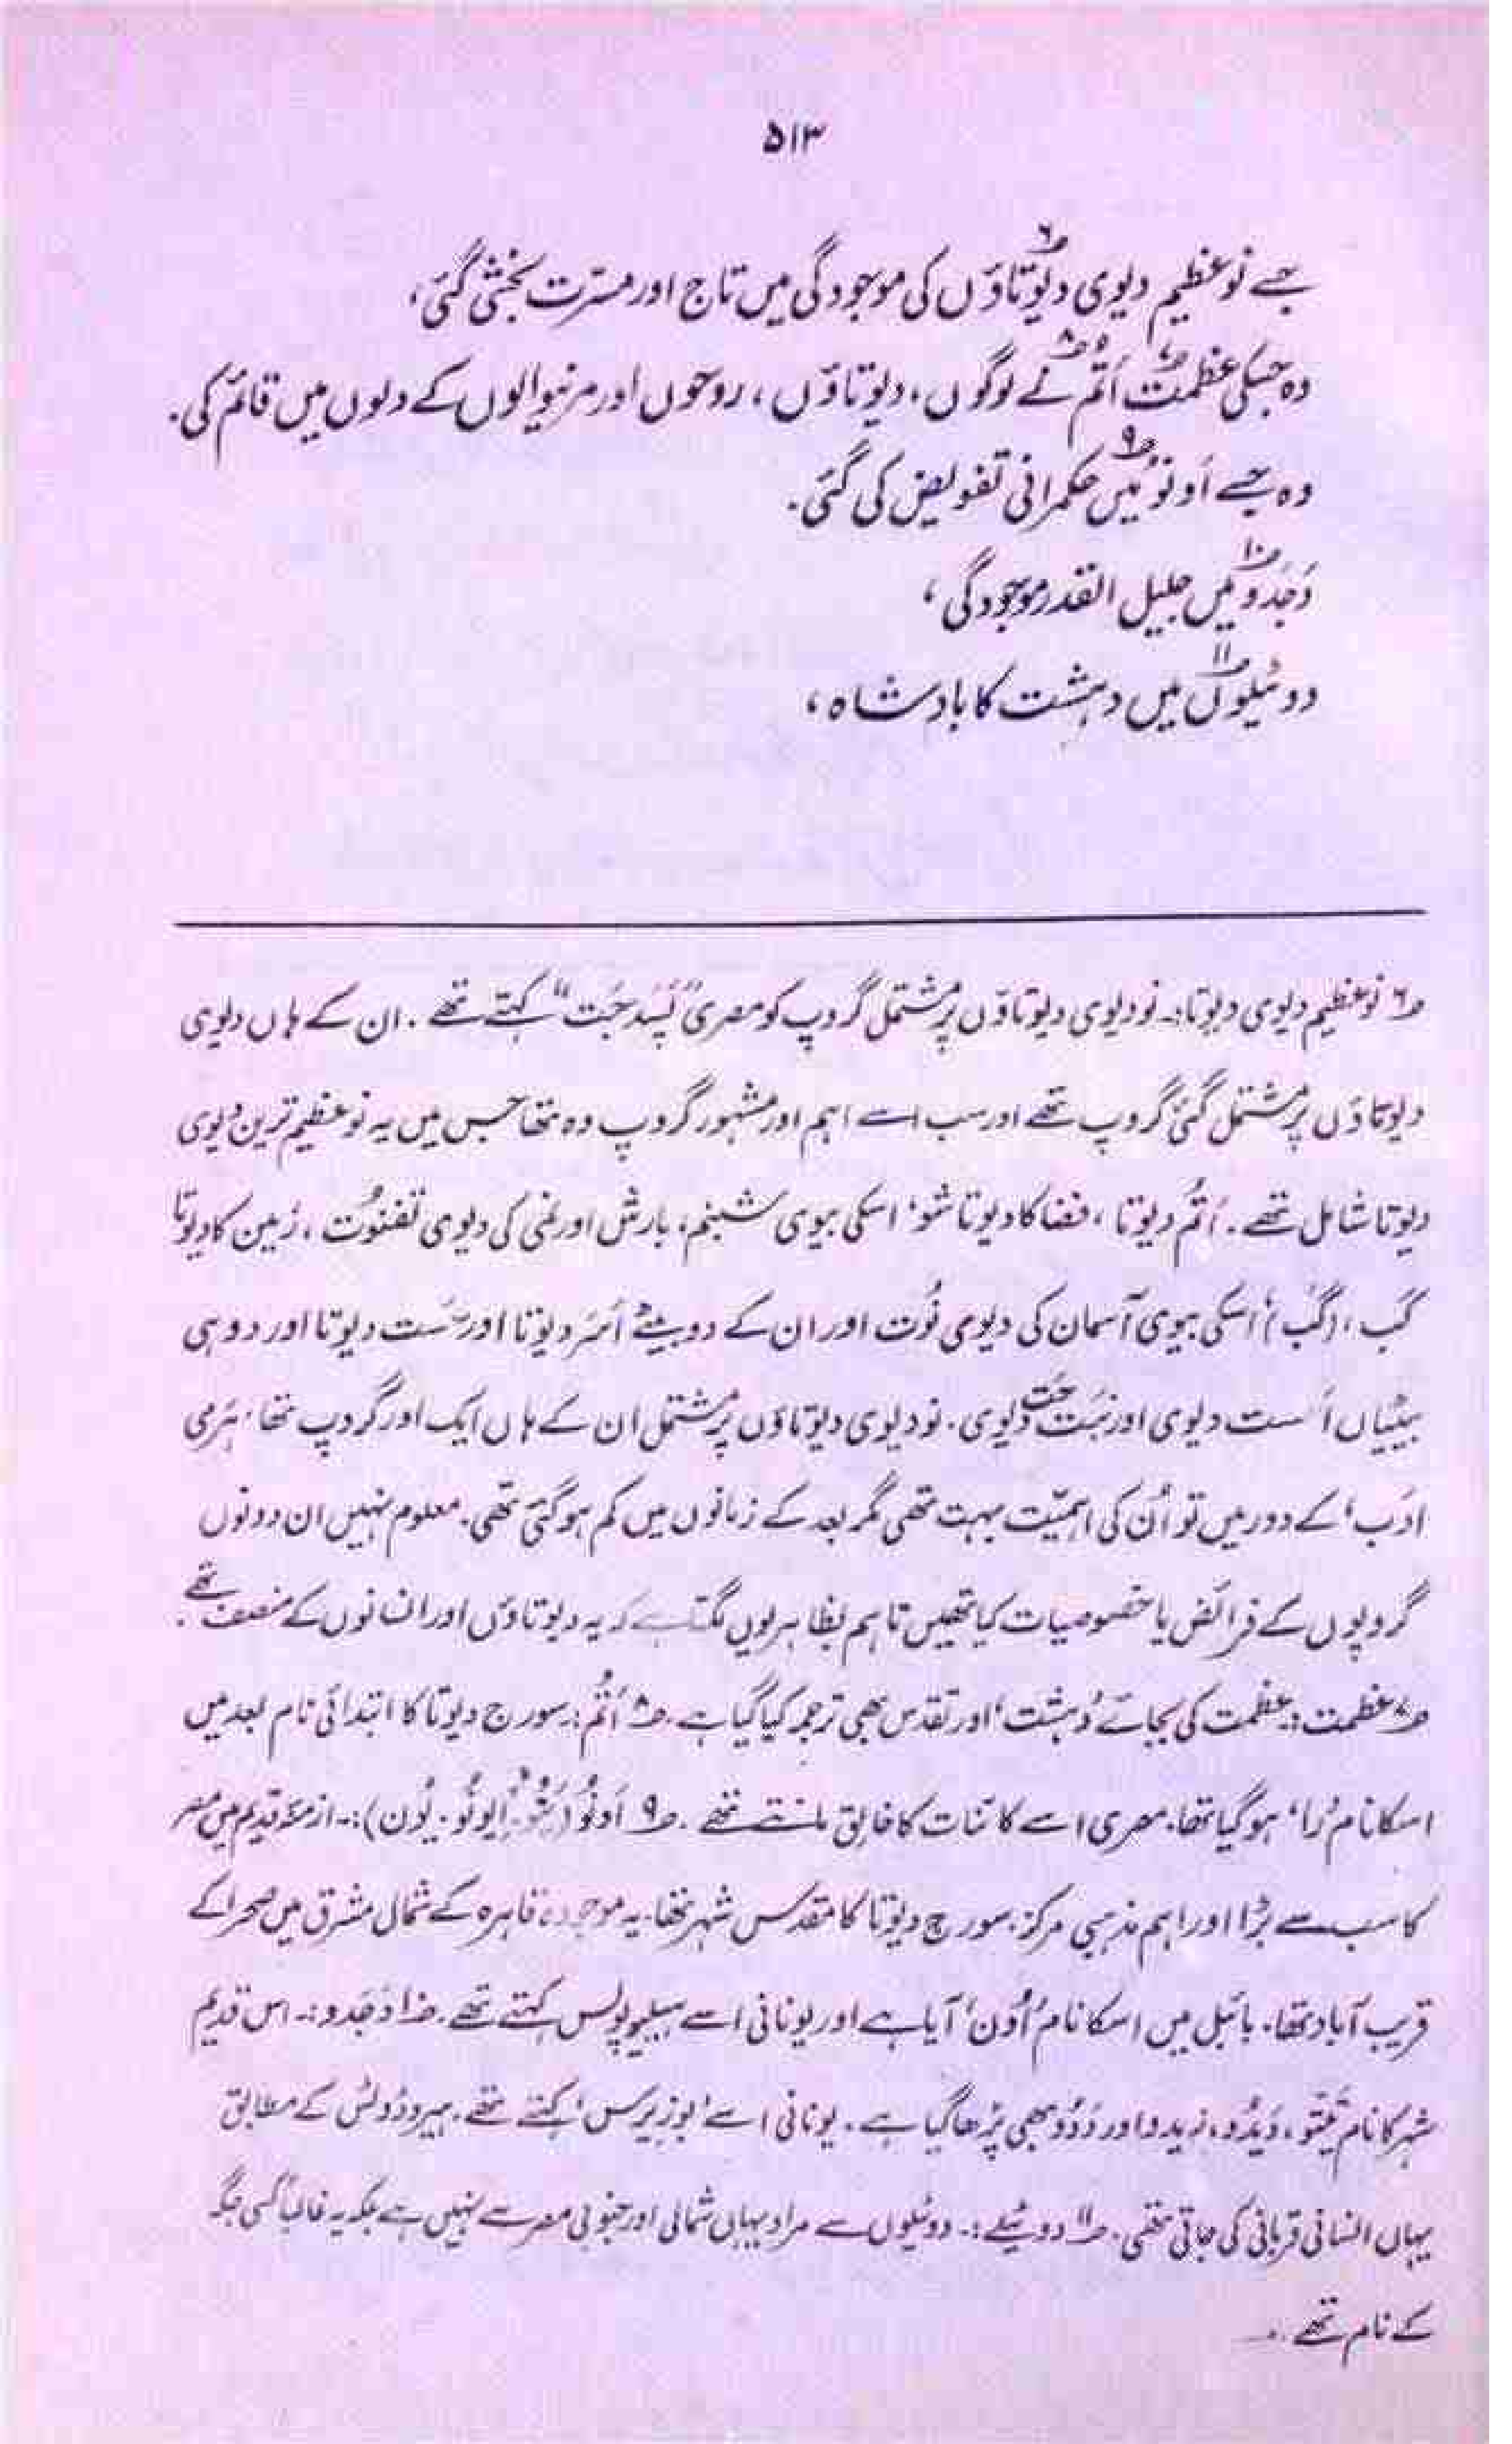 ۵۱۳
جسے نو عظیم دیوی دیوتاؤں؀۶ کی موجودگی میں تاج اور مسرّت بخشی گئی،
وہ جسکی عظمت؀۷ اَتُم؀۸ نے لوگوں، دیوتاؤں، روحوں اور مرنیوالوں کے دلوں میں قائم کی.
وہ جسے اَونُو؀۹ میں حکمرانی تفویض کی گئی.
دَجَدو؀۱۰ میں جلیل القدر موجودگی،
دو ٹیلوں؀۱۱ میں دہشت کا بادشاہ،
؀۶ نو عظیم دیوی دیوتا:۔ نو دیوی دیوتاؤں پر مشتمل گروپ کو مصری "پَسِدجَت" کہتے تھے. ان کے ہاں دیوی
دیوتاؤں پر مشتمل کئی گروپ تھے اور سب سے اہم اور مشہور گروپ وہ تھا جس میں یہ نو عظیم ترین دیوی
دیوتا شامل تھے. اَتُم دیوتا، فضا کا دیوتا شُو، اسکی بیوی شبنم، بارش اور نمی کی دیوی تفنُوت، زمین کا دیوتا
گَب، (گب)، اسکی بیوی آسمان کی دیوی نُوت اور ان کے دو بیٹے اَسَر دیوتا اور سَت دیوتا اور دو ہی
بیٹیاں اَست دیوی اور نبَت حَت دیوی. نو دیوی دیوتاؤں پر مشتمل ان کے ہاں ایک اور گروپ تھا، ہَرمی
ادَب، کے دور میں تو اُن کی اہمیّت بہت تھی مگر بعد کے زمانوں میں کم ہوگئی تھی. معلوم نہیں ان دونوں
گروپوں کے فرائض یا خصوصیات کیا تھیں تاہم بظاہر یوں لگتا ہے کہ یہ دیوتاؤں اور انسانوں کے منصف تھے.
؀۷ عظمت:۔ عظمت کی بجائے 'دہشت' اور تقدس بھی ترجمہ کیا گیا ہے. ؀۸ اَتُم:۔ سورج دیوتا کا ابتدائی نام بعد میں
اسکا نام 'را' ہوگیا تھا. مصری اسے کائنات کا خالق مانتے تھے. ؀۹ اَونُو (ایونُو. یُون):۔ ازمنۂ قدیم میں مصر
کا سب سے بڑا اور اہم مذہبی مرکز. سورج دیوتا کا مقدس شہر تھا. یہ موجودہ قاہرہ کے شمال مشرق میں صحرا کے
قریب آباد تھا. بائبل میں اسکا نام 'اُون' آیا ہے اور یونانی اسے ہیلیوپولس کہتے تھے. ؀۱۰ دَجَدو:۔ اس قدیم
شہر کا نام تَیتو، دَیدُو، زیدو اور دَدُو بھی پڑھا گیا ہے. یونانی اسے 'بوزیرس' کہتے تھے. ہیروڈوٹس کے مطابق
یہاں انسانی قربانی کی جاتی تھی. ؀۱۱ دو ٹیلے:۔ دو ٹیلوں سے مراد یہاں شمالی اور جنوبی مصر سے نہیں ہے بلکہ یہ غالباً کسی جگہ
کے نام تھے.